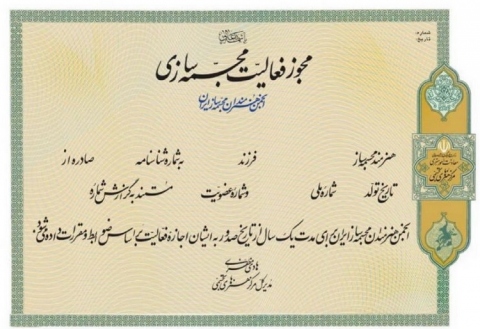 باسمه تعالی
شماره:
تاریخ:
مجوز فعالیت مجسمه سازی
انجمن هنرمندان مجسمه ساز ایران
هنرمند مجسمه ساز فرزند به شماره شناسنامه صادره از
تاریخ تولد شماره ملی وشماره عضویت مستند به گزارش شماره
انجمن هنرمندان مجسمه ساز ایران برای مدت یک سال از تاریخ صدور به ایشان اجازه فعالیت براساس ضوابط ومقررات داده می شود.
هادی مظفری
مدیرکل مرکز هنرهای تجسمی